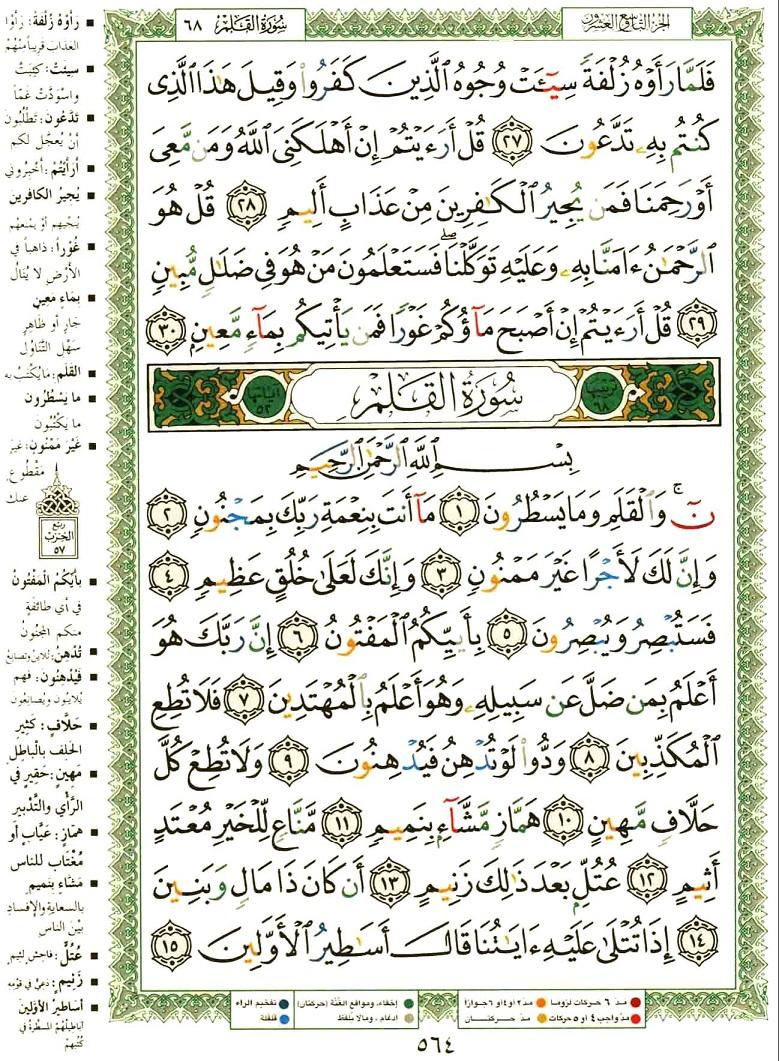 الجزء التاسع والعشرون
سُورَةُ القَلَمِ ٦٨
فَلَمَّا رَأَوْهُ زُلْفَةً سِيٓـَٔتْ وُجُوهُ ٱلَّذِينَ كَفَرُوا۟ وَقِيلَ هَٰذَا ٱلَّذِى
كُنتُم بِهِۦ تَدَّعُونَ ٢٧ قُلْ أَرَءَيْتُمْ إِنْ أَهْلَكَنِىَ ٱللَّهُ وَمَن مَّعِىَ
أَوْ رَحِمَنَا فَمَن يُجِيرُ ٱلْكَٰفِرِينَ مِنْ عَذَابٍ أَلِيمٍ ٢٨ قُلْ هُوَ
ٱلرَّحْمَٰنُ ءَامَنَّا بِهِۦ وَعَلَيْهِ تَوَكَّلْنَا ۖ فَسَتَعْلَمُونَ مَنْ هُوَ فِى ضَلَٰلٍ مُّبِينٍ
٢٩ قُلْ أَرَءَيْتُمْ إِنْ أَصْبَحَ مَآؤُكُمْ غَوْرًا فَمَن يَأْتِيكُم بِمَآءٍ مَّعِينٍۭ ٣٠
ترتيبها ٦٨ سُورَةُ القَلَمِ آياتها ٥٢
بِسْمِ ٱللَّهِ ٱلرَّحْمَٰنِ ٱلرَّحِيمِ
نٓ ۚ وَٱلْقَلَمِ وَمَا يَسْطُرُونَ ١ مَآ أَنتَ بِنِعْمَةِ رَبِّكَ بِمَجْنُونٍ ٢
وَإِنَّ لَكَ لَأَجْرًا غَيْرَ مَمْنُونٍ ٣ وَإِنَّكَ لَعَلَىٰ خُلُقٍ عَظِيمٍ ٤
فَسَتُبْصِرُ وَيُبْصِرُونَ ٥ بِأَييِّكُمُ ٱلْمَفْتُونُ ٦ إِنَّ رَبَّكَ هُوَ
أَعْلَمُ بِمَن ضَلَّ عَن سَبِيلِهِۦ وَهُوَ أَعْلَمُ بِٱلْمُهْتَدِينَ ٧ فَلَا تُطِعِ
ٱلْمُكَذِّبِينَ ٨ وَدُّوا۟ لَوْ تُدْهِنُ فَيُدْهِنُونَ ٩ وَلَا تُطِعْ كُلَّ
حَلَّافٍ مَّهِينٍ ١٠ هَمَّازٍ مَّشَّآءٍۭ بِنَمِيمٍ ١١ مَّنَّاعٍ لِّلْخَيْرِ مُعْتَدٍ
أَثِيمٍ ١٢ عُتُلٍّۭ بَعْدَ ذَٰلِكَ زَنِيمٍ ١٣ أَن كَانَ ذَا مَالٍ وَبَنِينَ
١٤ إِذَا تُتْلَىٰ عَلَيْهِ ءَايَٰتُنَا قَالَ أَسَٰطِيرُ ٱلْأَوَّلِينَ ١٥
رَأَوْهُ زُلْفَةً: رَأَوْا
العذاب قريباً منهم
سِيئَتْ: كَئِبَتْ
واسودّت غمّاً
تَدَّعُون: تَطْلُبُون
أن يُعجّل لكم
أَرَأَيْتُمْ: أخبروني
يُجيرُ الكافرين
يُنجيهم أو يمنعهم
غَوْراً: ذاهباً في
الأرض لا يُنال
بماءٍ مَعينٍ
جارٍ أو ظاهرٍ
سهل التناول
القَلَم: ما يُكتَبُ به
ما يَسْطُرُون
ما يكتُبون
غَيْرَ مَمْنُون: غير
مقطوع
عنك
ربع الحزب ٥٧
بأيّكُمُ المَفْتُونُ
في أي طائفةٍ
منكم المجنون
تُدْهِنُ: تُلاين وتصانع
فَيُدْهِنُون: فهم
يُلاينون ويصانعون
حَلّافٍ: كثير
الحلف بالباطل
مَهينٍ: حقير في
الرأي والتدبير
هَمّازٍ: عَيّاب أو
مُغتاب للناس
مَشّاءٍ بنَميمٍ
بالسعاية والإفساد
بين الناس
عُتُلٍّ: فاحش لئيم
زَنيمٍ: دَعِيّ في قومه
أساطيرُ الأوّلينَ
أباطيلُهُم المسطّرة في
كُتُبهم
مدّ ٦ حركات لزوماً
مدّ ٢ أو ٤ أو ٦ جوازاً
إخفاء، ومواقع الغُنَّة (حركتان)
تفخيم الراء
مدّ واجب ٤ أو ٥ حركات
مدّ حركتان
إدغام، وما لا يُلفَظ
قلقلة
٥٦٤